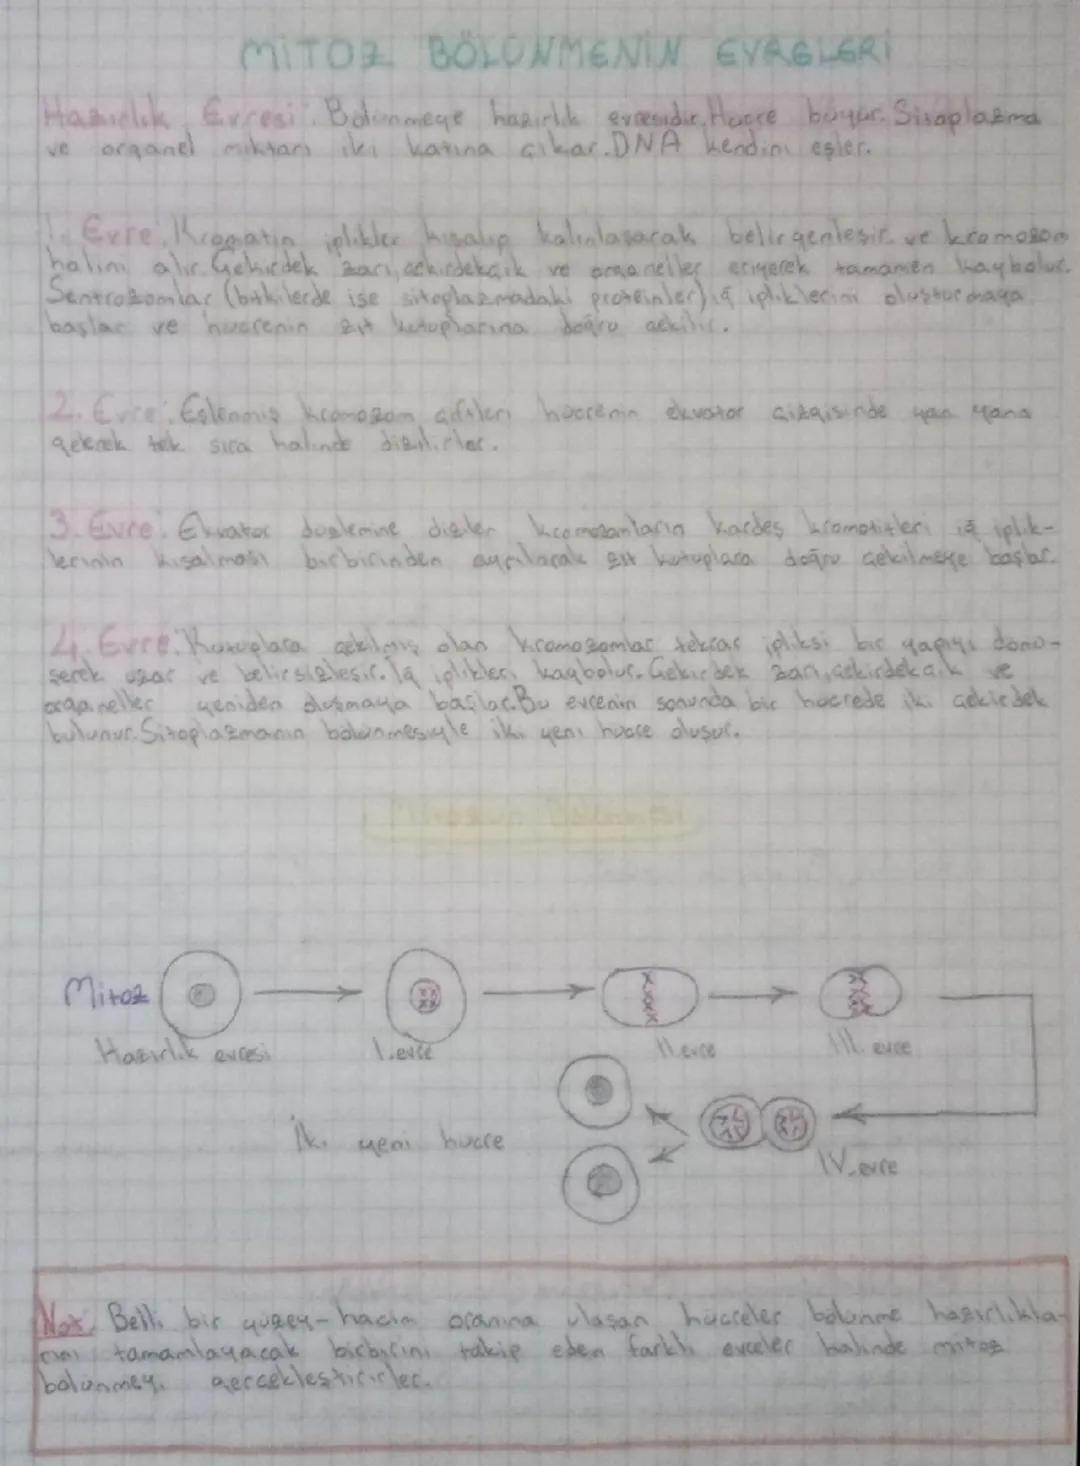 MİTOZ BÖLÜNMENİN EVRELERİ
Hazırlık Evresi: Bölünmeye hazırlık evresidir. Hücre büyür. Sitoplazma
ve organel miktarı iki katına çıkar. DNA kendini eşler.
1. Evre: Kromatin iplikler kısalıp kalınlaşarak belirgenleşir ve kromozom
halini alır. Çekirdek zarı, çekirdekçik ve organeller eriyerek tamamen kaybolur.
Sentrozomlar (bitkilerde ise sitoplazmadaki proteinler) iğ ipliklerini oluşturmaya
başlar ve hücrenin zıt kutuplarına doğru çekilir.
2. Evre: Eşlenmiş kromozom çiftleri hücrenin ekvator çizgisinde yan yana
gelerek tek sıra halinde dizilirler.
3. Evre: Ekvator düzlemine dizilen kromozomların kardeş kromotitleri iğ iplik-
lerinin kısalması birbirinden ayrılarak zıt kutuplara doğru çekilmeye başlar.
4. Evre: Kutuplara çekilmiş olan kromozomlar tekrar ipliksi bir yapıyı dönü-
şerek uzar ve belirsizleşir. İğ iplikleri kaybolur. Çekirdek zarı, çekirdekçik ve
organeller yeniden oluşmaya başlar. Bu evrenin sonunda bir hücrede iki çekirdek
bulunur. Sitoplazmanın bölünmesiyle iki yeni hücre oluşur.
Mitoz
Hazırlık evresi I. evre II. evre III. evre
İki yeni hücre
IV. evre
Not: Belli bir yüzey-hacim oranına ulaşan hücreler bölünme hazırlıkla-
rını tamamlayacak birbirini takip eden farklı evreler halinde mitoz
bölünmeyi gerçekleştirirler.